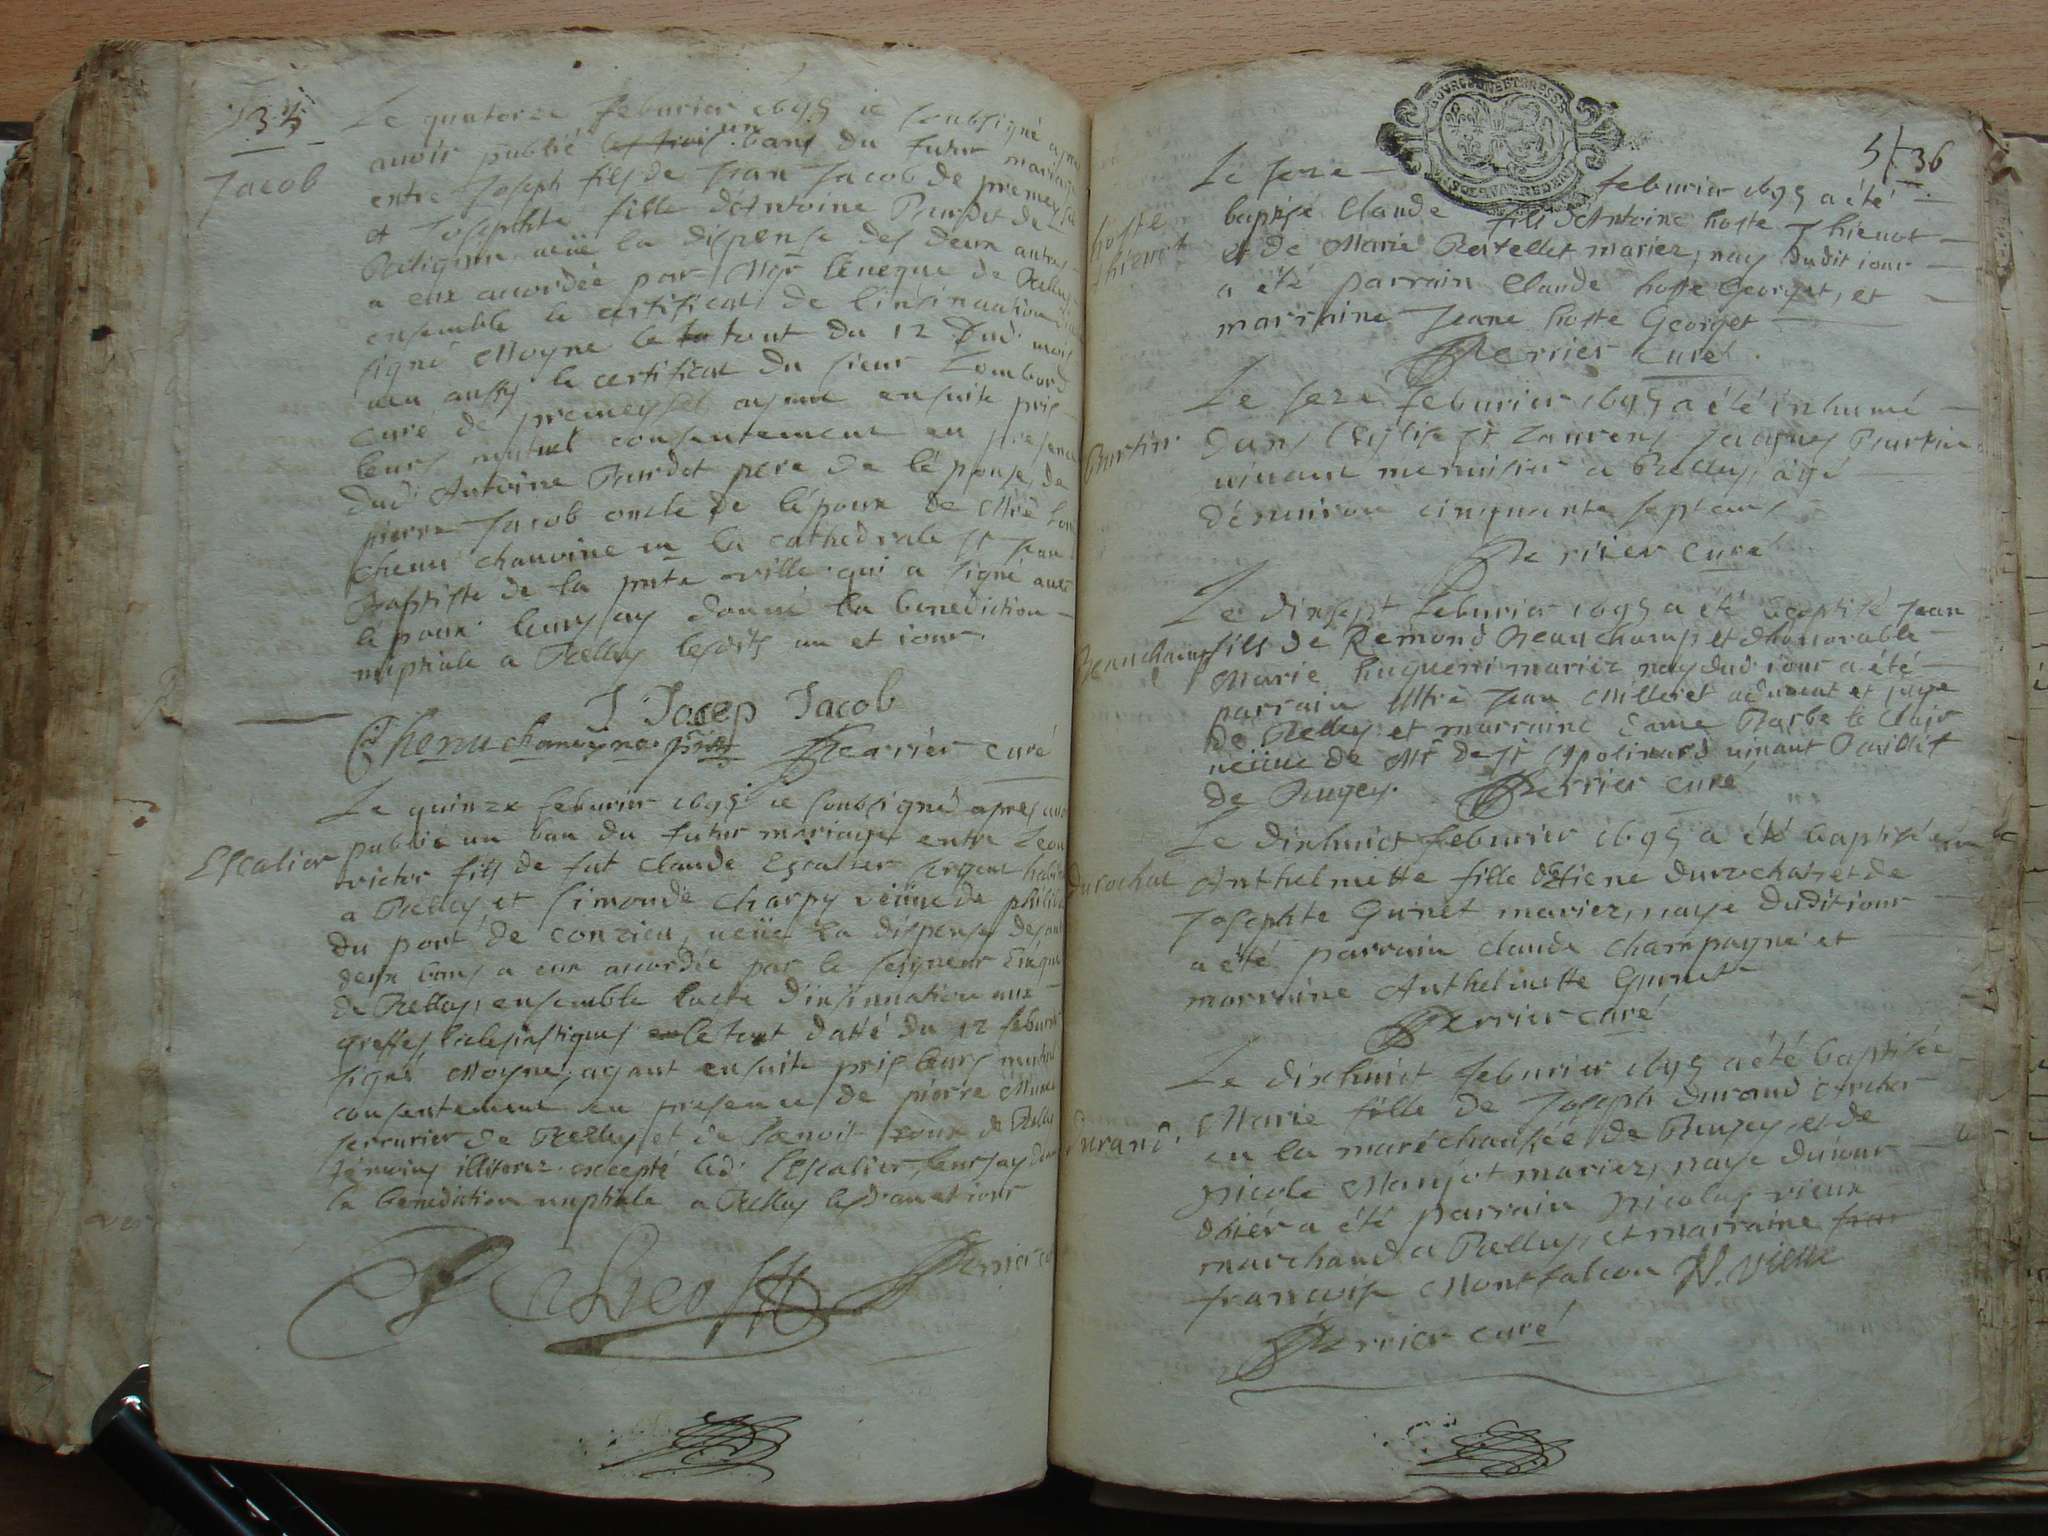 35
Jacob
Le quatorze feburier 1695 ie soubsigné apres
auoir publié les trois un bans du futur mariage
entre Joseph fils de Jean Jacob de premeysel
et Josephte fille d'Antoine Burdet de
Religieu ueüe la dispense des deux autres
a eux accordée par Mgr l'éueque de Belley
ensemble le certificat de l'insinuation
signé Moyne le tout du 12 dud. mois
ueu aussy le certificat du sieur Lombard
curé de premeysel ayant ensuite pris
leurs mutuel consentement en presence
dud. Antoine Burdet pere de l'épouse, de
pierre Jacob oncle de l'époux de Mre
chenu chanoine en la cathedrale St Jean
Baptiste de la pnte ville qui a signé auec
l'époux. leurs ay donné la benediction
nuptiale a Belley lesdits an et iour.
J Jacep Jacob
Chenu chanoyne Perrier curé
Escalier
Le quinze feburier 1695 ie soubsigné apres auoir
publié un ban du futur mariage entre Leon
victor fils de fut Claude Escalier sergent
a Belley et Simonde Charpy veüue de philib
du port de conzieu, ueüe la dispense des
deux bans a eux accordée par le seigneur Euéque
de Belley, ensemble l'acte d'insinuation aux
greffes eclesiastiques le tout datté du 12 feburier
signé Moyne, ayant ensuite pris leurs mutuel
consentement en presence de pierre
serrurier de Belley et de Benoit roux de Belley
témoins illiterez excepté led. Escalier, leurs ay donné
la benediction nuptiale a Belley les d. an et iour
Perrier curé
36
hoste
thienot
Le seze feburier 1695 a été
baptisé Claude fils d'Antoine hoste Thienot
et de Marie Ratellet mariez, nay dudit iour
a été parrain Claude hoste Georget, et
marraine Jeane hoste Georget
Perrier curé
Burtin
Le seze feburier 1695 a été inhumé
dans l'Eglise St Laurens Jacques Burtin
uiuant menuisier a Belley, agé
d'enuiron cinquante sept ans
Perrier curé
Beauchamp
Le dixsept feburier 1695 a été baptisé Jean
fils de Remond Beauchamp et d'honnorable
Marie huguenin mariez nay dud. iour a été
parrain Mre Jean Milleret aduocat et juge
de Belley et marraine Dame Barbe le Clair
ueüue de Mr de St Apolinard uiuant Baillif
de Bugey. Perrier curé
Durochat
Le dixhuict feburier 1695 a été baptisée
Anthelmette fille d'Etiene durochat et de
Josephte Guinet mariez, naye dudit iour
a été parrain claude champagne et
marraine Anthelmette Guinet
Perrier curé
Durand.
Le dixhuict feburier 1695 a été baptisée
Marie fille de Joseph durand Archer
en la maréchaussée de Bugey, et de
Nicole Manjot mariez, naye du iour
d'hier a été parrain Nicolas vieux
marchand a Belley, et marraine fran
francoise Montfalcon N. vieux
Perrier curé